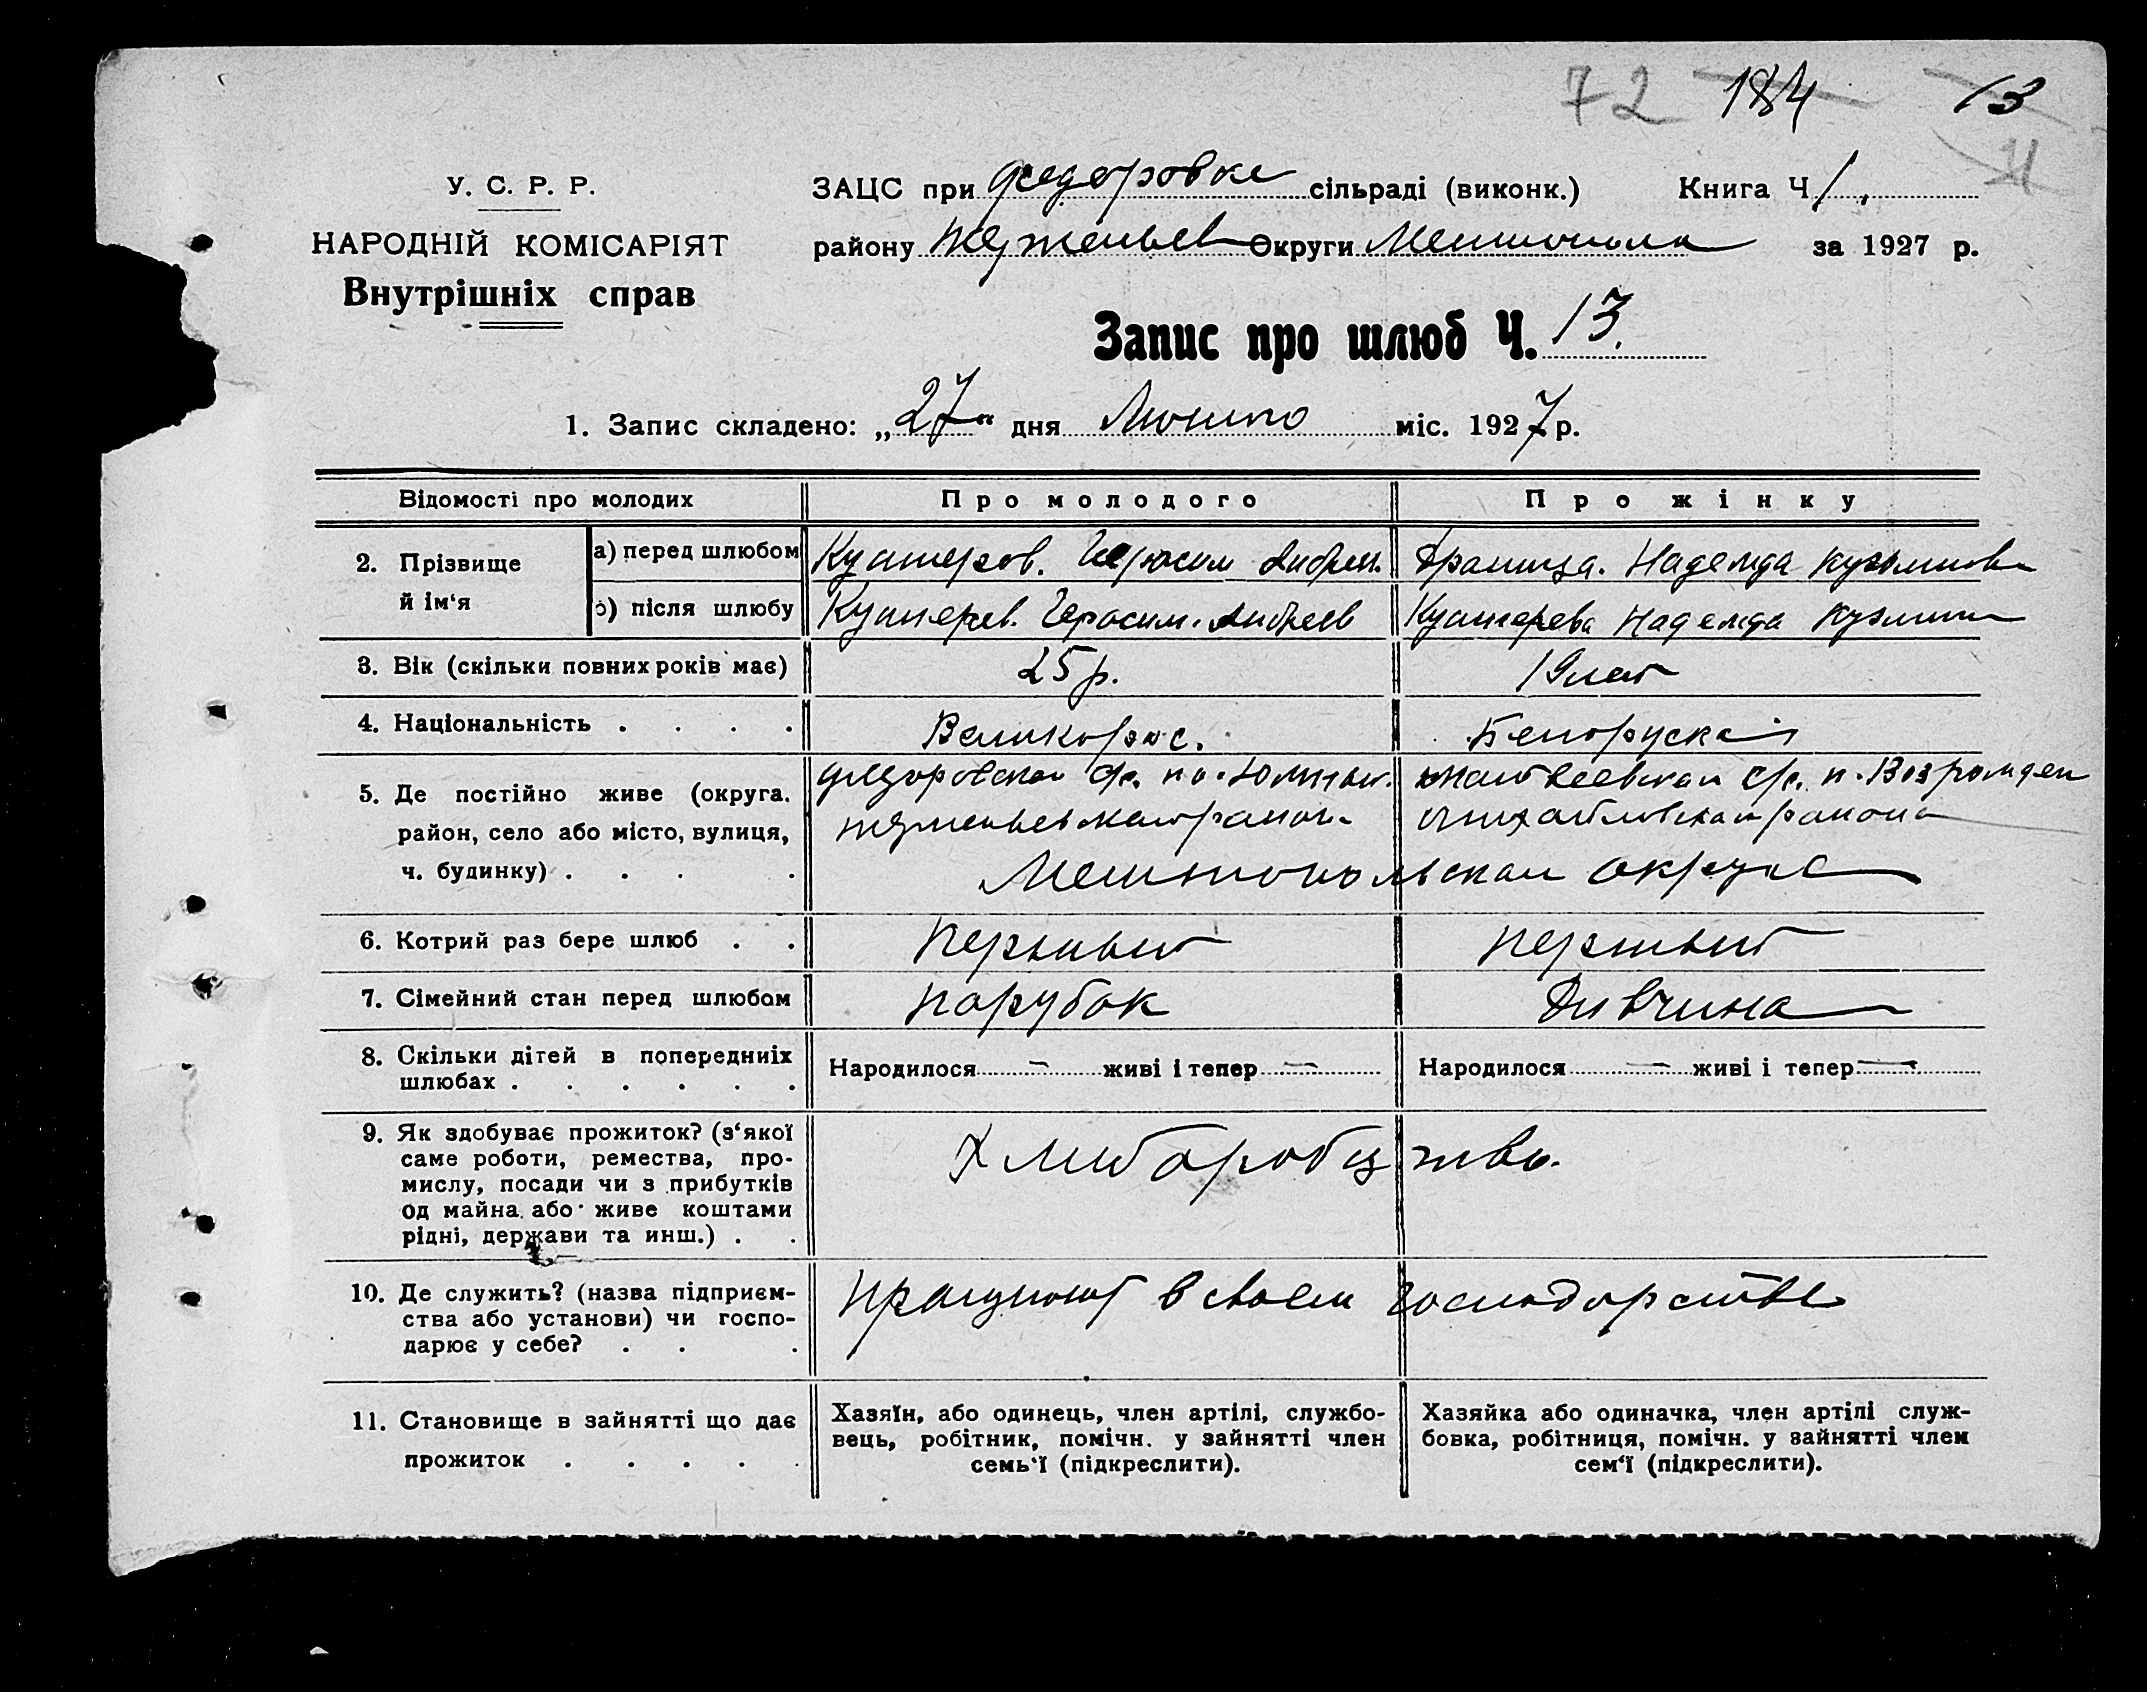 72 184 13
У. С. Р. Р.
НАРОДНІЙ КОМІСАРІЯТ
Внутрішніх справ
ЗАЦС при Федоровке сільраді (виконк.) Книга Ч 1,
району Округи за 1927 р.
Запис про шлюб Ч. 13.
1. Запис складено: „27“ дня Лютого міс. 1927 р.
Відомості про молодих Про молодого Про жінку
2. Прізвище й ім‘я
а) перед шлюбом Кушнеров. Герасим Андреев. Драница. Надежда Кузьминов
б) після шлюбу Кушнерев. Герасим. Андреев Кушнерева Надежда
3. Вік (скільки повних років має) 25 р. 19 лет
4. Національність . . . . Великорос. Белоруская
5. Де постійно живе (округа, район, село або місто, вулиця, ч. будинку) . . . .
Федоровской с/с.
Матвеевская с/с. п. Возрожден
Михайловская района
Мелитопольская округе
6. Котрий раз бере шлюб . . Первый Первый
7. Сімейний стан перед шлюбом Парубок Дивчина
8. Скільки дітей в попередниіх шлюбах . . . . . . Народилося — живі і тепер — Народилося — живі і тепер —
9. Як здобуває прожиток? (з‘якої саме роботи, ремества, промислу, посади чи з прибутків од майна або живе коштами рідні, держави та инш.) . .
Хлибаробцтво.
10. Де служить? (назва підприємства або установи) чи господарює у себе? . . .
Працуют в своем господарстве
11. Становище в зайнятті що дає прожиток . . . . .
Хазяїн, або одинець, член артілі, службовець, робітник, помічн. у зайнятті член семь‘ї (підкреслити).
Хазяйка або одиначка, член артілі службовка, робітниця, помічн. у зайнятті член сем‘ї (підкреслити).